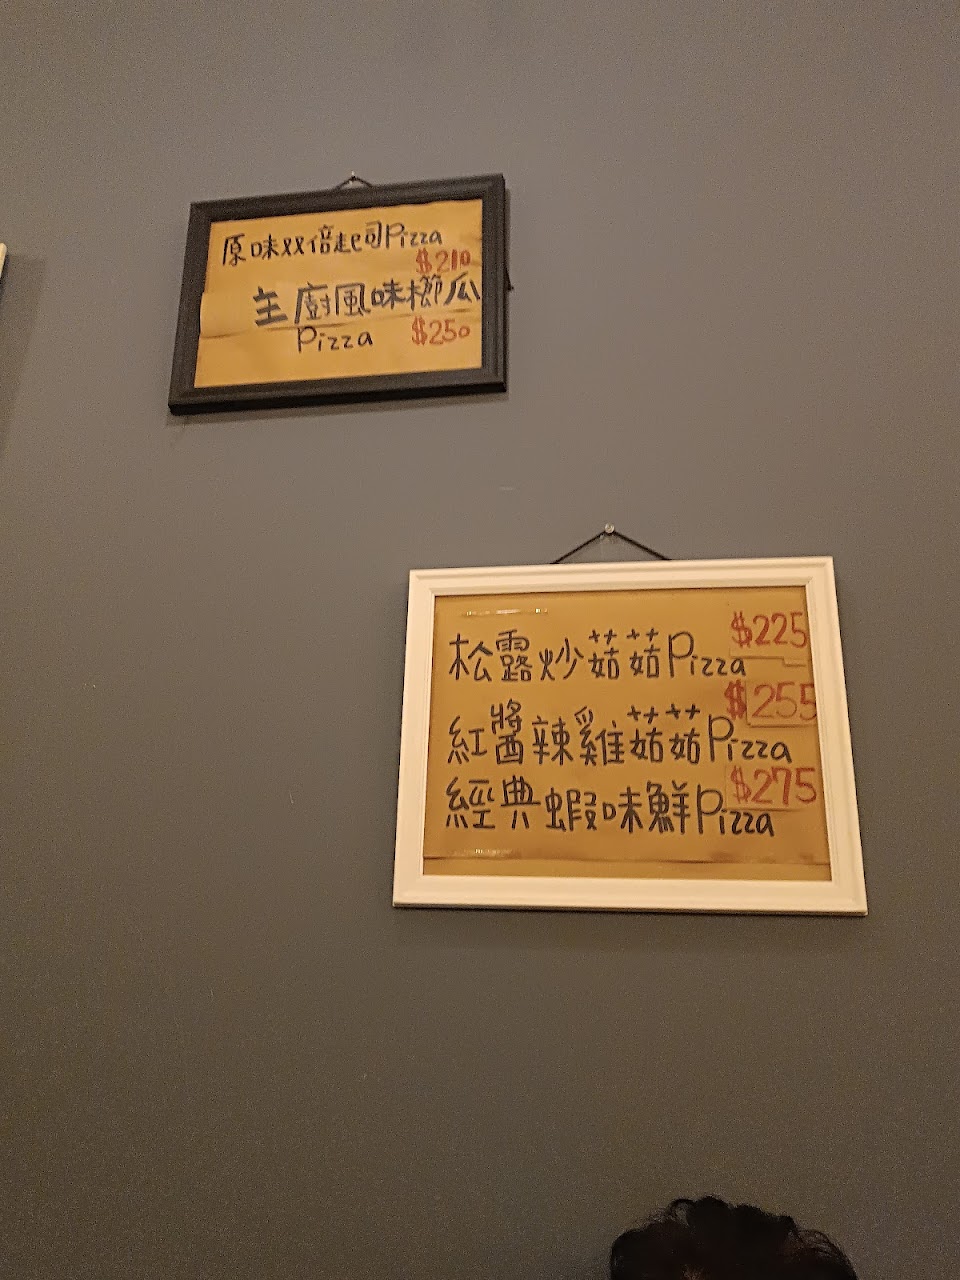 原味双倍起司Pizza
$210
主廚風味櫛瓜
Pizza $250
$225
松露炒菇菇Pizza
$255
紅醬辣雞菇菇Pizza
$275
經典蝦味鮮Pizza